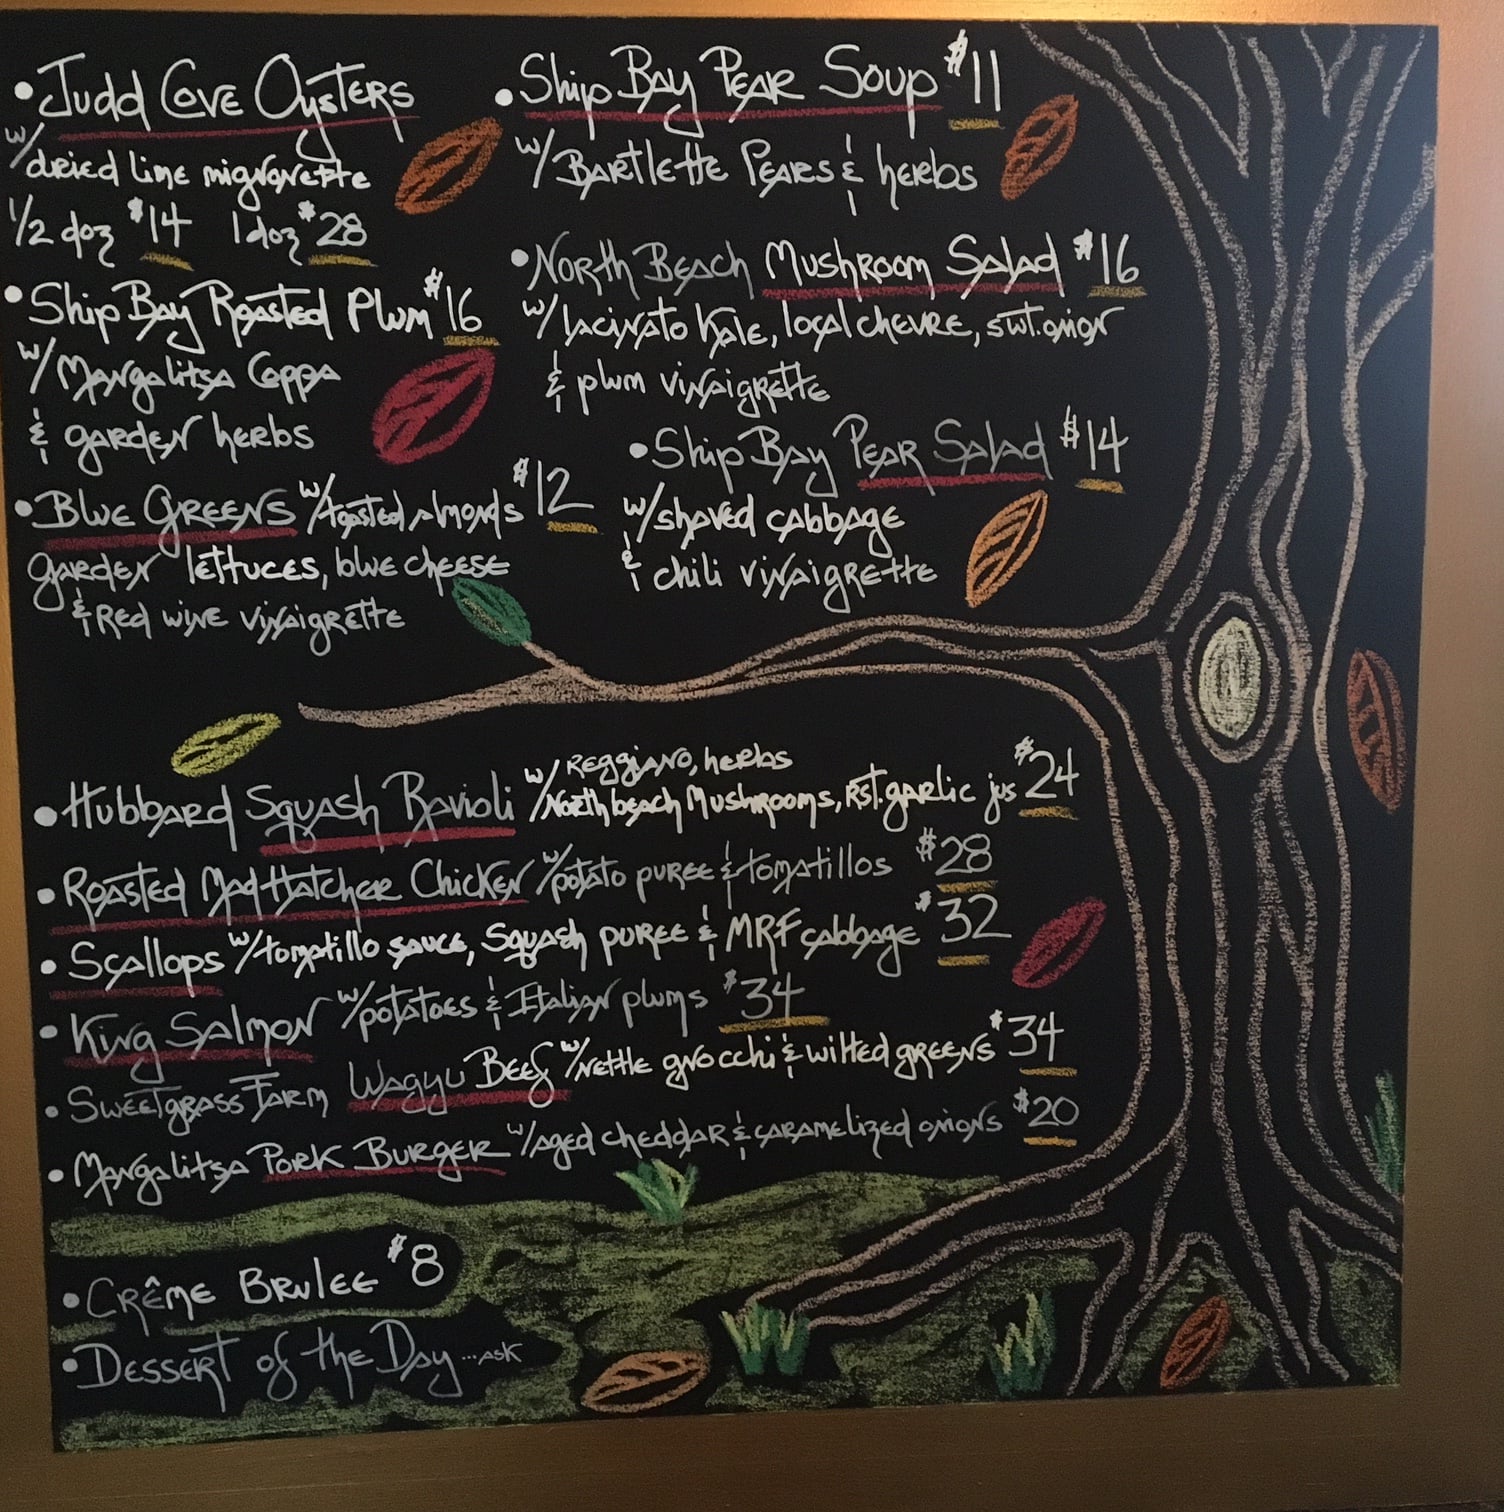 • Judd Cove Oysters
w/ dried lime mignonette
1/2 doz $14 1 doz $28
• Ship Bay Roasted Plum $16
w/ Mangalitsa Coppa
& garden herbs
• Blue Greens w/ toasted almonds $12
garden lettuces, blue cheese
& red wine vinaigrette
• Ship Bay Pear Soup $11
w/ Bartlette Pears & herbs
• North Beach Mushroom Salad $16
w/ lacinato kale, local chevre, swt. onion
& plum vinaigrette
• Ship Bay Pear Salad $14
w/ shaved cabbage
& chili vinaigrette
• Hubbard Squash Ravioli w/ Reggiano, herbs
North beach Mushrooms, rst. garlic jus $24
• Roasted Mad Hatcher Chicken w/ potato puree & tomatillos $28
• Scallops w/ tomatillo sauce, squash puree & MRF cabbage $32
• King Salmon w/ potatoes & Italian plums $34
• Sweetgrass Farm Wagyu Beef w/ nettle gnocchi & wilted greens $34
• Mangalitsa Pork Burger w/ aged cheddar & caramelized onions $20
• Crême Brulee $8
• Dessert of the Day ...ask